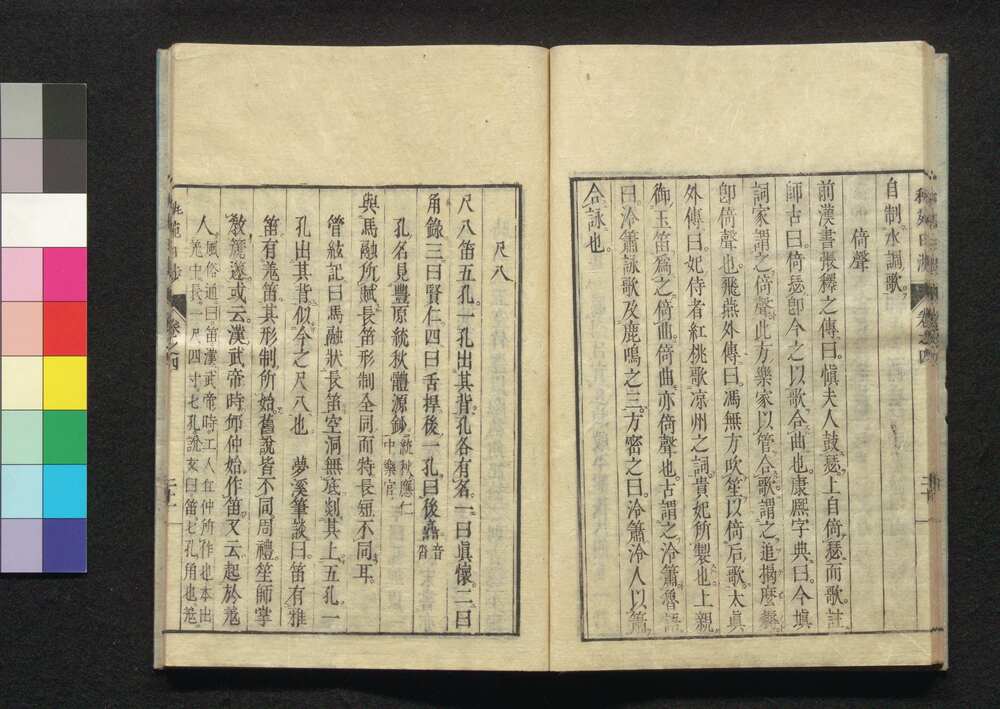 自制水調歌
倚聲
前漢書張釋之傳曰慎夫人鼓瑟上自倚瑟而歌註
師古曰倚瑟卽今之以歌合曲也康熙字典曰今填
詞家謂之倚聲此方樂家以管合歌謂之追搊
卽倚聲也飛燕外傳曰馮無方吹笙以倚后歌太眞
外傳曰妃侍者紅桃歌凉州之詞貴妃所製也上親
御玉笛爲之倚曲倚曲亦倚聲也古謂之泠簫魯語
曰泠簫詠歌及鹿鳴之三方密之曰泠簫泠人以簫
合詠也
尺八
尺八笛五孔一孔出其背孔各有名一曰眞懷二曰
角錄三曰賢仁四曰舌捍後一孔曰後音
孔名見豐原統秋體源鈔統秋應仁中樂官
與馬融所賦長笛形制全同而特長短不同耳
管絃記曰馬融狀長笛空洞無底剡其上五孔一
孔出其背似今之尺八也 夢溪筆談曰笛有雅
笛有羗笛其形制所始舊說皆不同周禮笙師掌
敎箎篴或云漢武帝時丘仲始作笛又云起於羗
人風俗通曰笛漢武帝時工人丘仲所作也本出羗中長一尺四寸七孔說文曰笛七孔角也羗
卷之四
卷之四